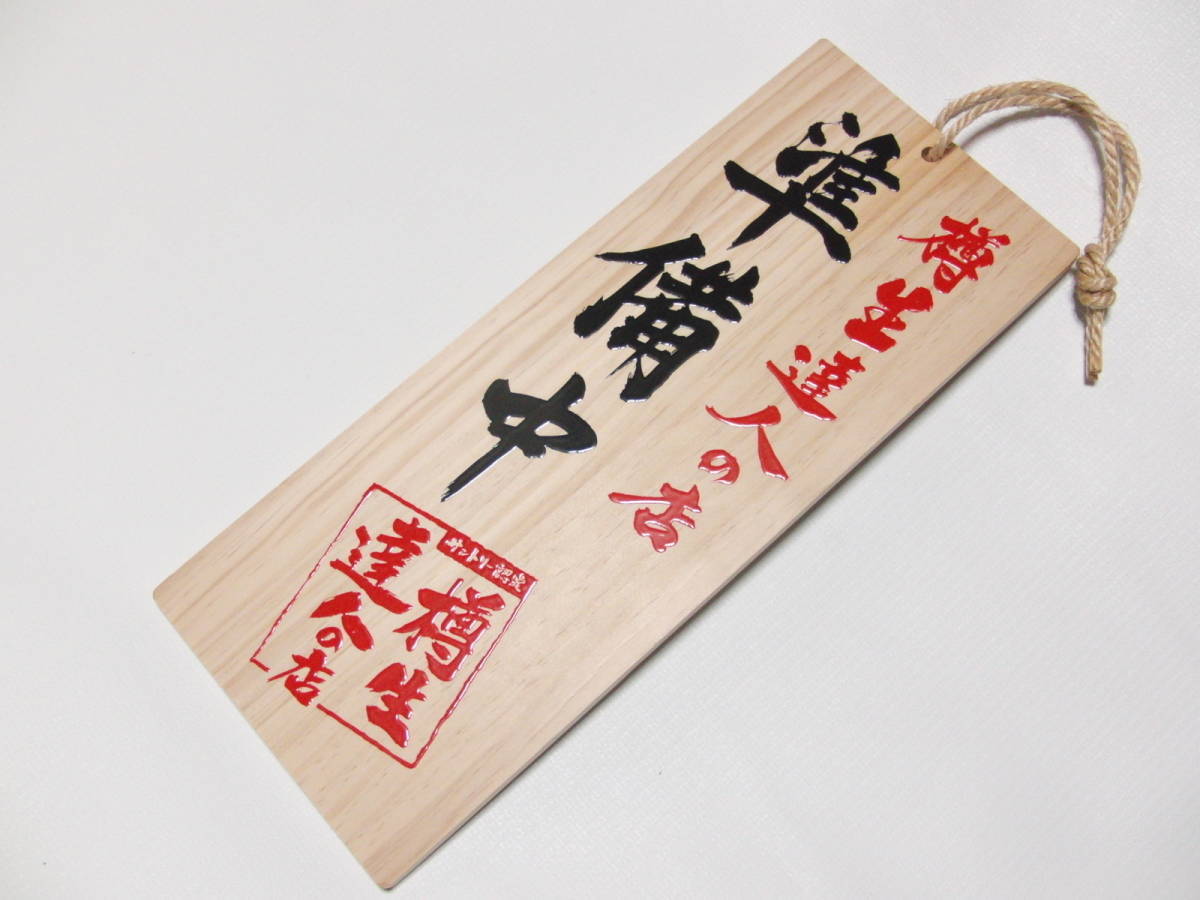 樽生達人の店
準備中
サントリー認定
樽生
達人の店